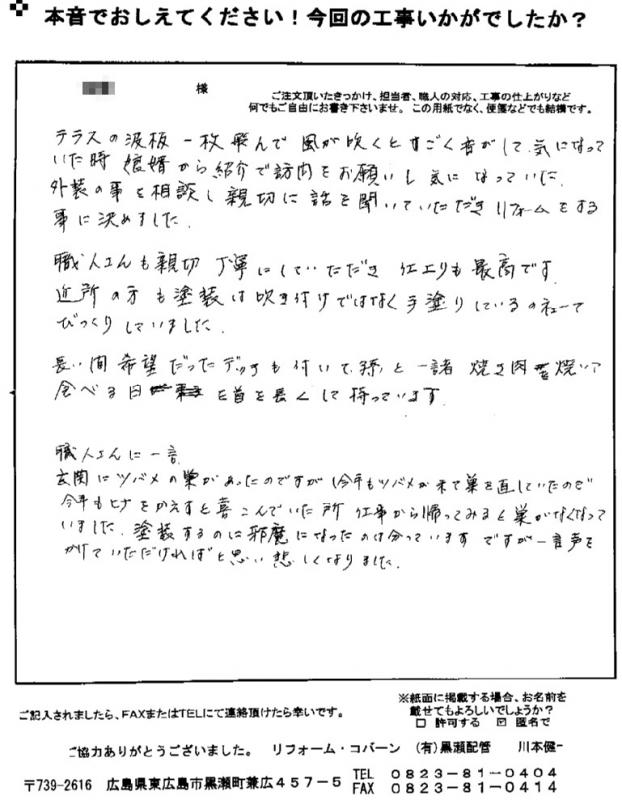 本音でおしえてください！今回の工事いかがでしたか？
様
ご注文頂いたきっかけ、担当者、職人の対応、工事の仕上がりなど
何でもご自由にお書き下さいませ。この用紙でなく、便箋などでも結構です。
テラスの波板一枚飛んで風が吹くとすごく音がして気になって
いた時 娘婿から紹介で訪問をお願いし気になっていた
外装の事を相談し親切に話を聞いていただきリフォームをする
事に決めました.
職人さんも親切 丁寧にしていただき仕上りも最高です
近所の方も塗装は吹き付けではなく手塗りしているのを見て
びっくりしていました.
長い間希望だったデッキも付いて、孫と一諸 焼き肉 焼いて
食べる日 を首を長くして待っています.
職人さんに一言
玄関にツバメの巣があったのですが(今年もツバメが来て巣を直していたので
今年もヒナをかえすと喜こんでいた所 仕事から帰ってみると巣がなくなって
いました. 塗装するのに邪魔になったのは分っています ですが一言声を
かけていただければと思い悲しくなりました.
※紙面に掲載する場合、お名前を
載せてもよろしいでしょうか？
□ 許可する ☑ 匿名で
ご記入されましたら、FAXまたはTELにて連絡頂けたら幸いです。
ご協力ありがとうございました。 リフォーム・コバーン （有）黒瀬配管 川本健一
〒739-2616 広島県東広島市黒瀬町兼広４５７－５ TEL ０８２３－８１－０４０４
FAX ０８２３－８１－０４１４